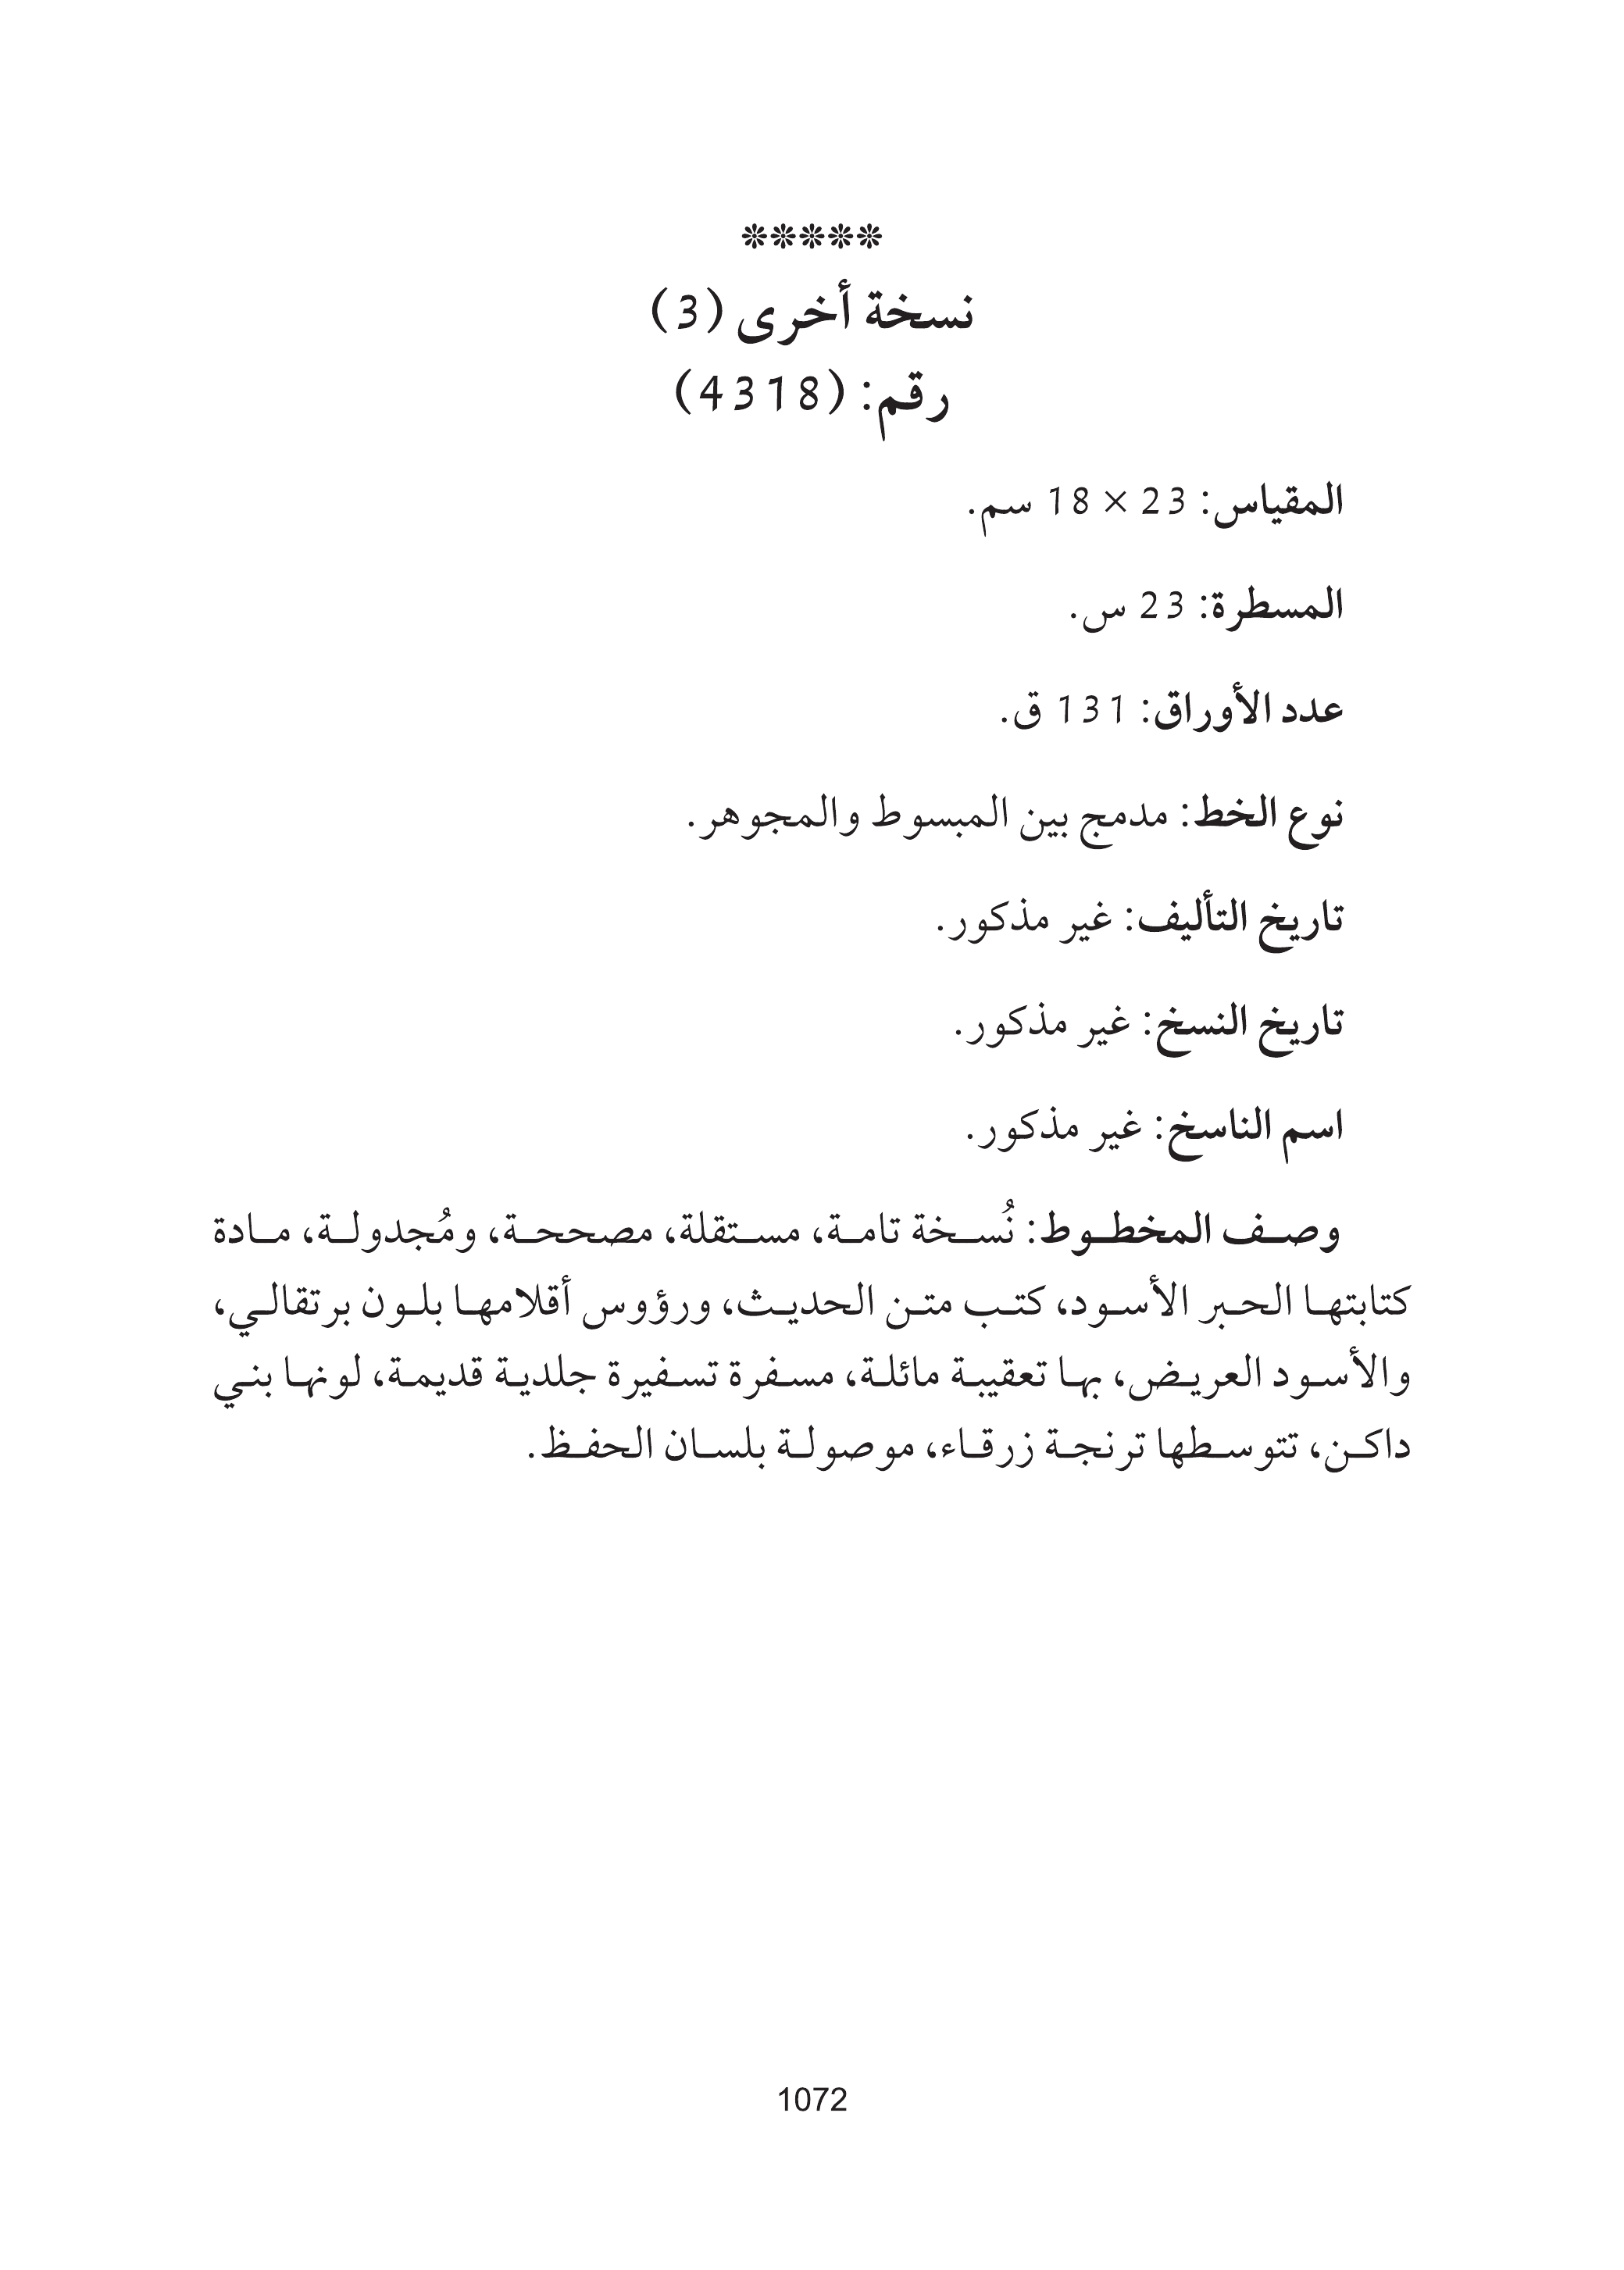 *****
نسخة أخرى (3)
رقم: (4318)
المقياس: 23 × 18 سم.
المسطرة: 23 س.
عدد الأوراق: 131 ق.
نوع الخط: مدمج بين المبسوط والمجوهر.
تاريخ التأليف: غير مذكور.
تاريخ النسخ: غير مذكور.
اسم الناسخ: غير مذكور.
وصف المخطوط: نُسخة تامة، مستقلة، مصححة، ومُجدولة، مادة
كتابتها الحبر الأسود، كتب متن الحديث، ورؤوس أقلامها بلون برتقالي،
والأسود العريض، بها تعقيبة مائلة، مسفرة تسفيرة جلدية قديمة، لونها بني
داكن، تتوسطها ترنجة زرقاء، موصولة بلسان الحفظ.
1072